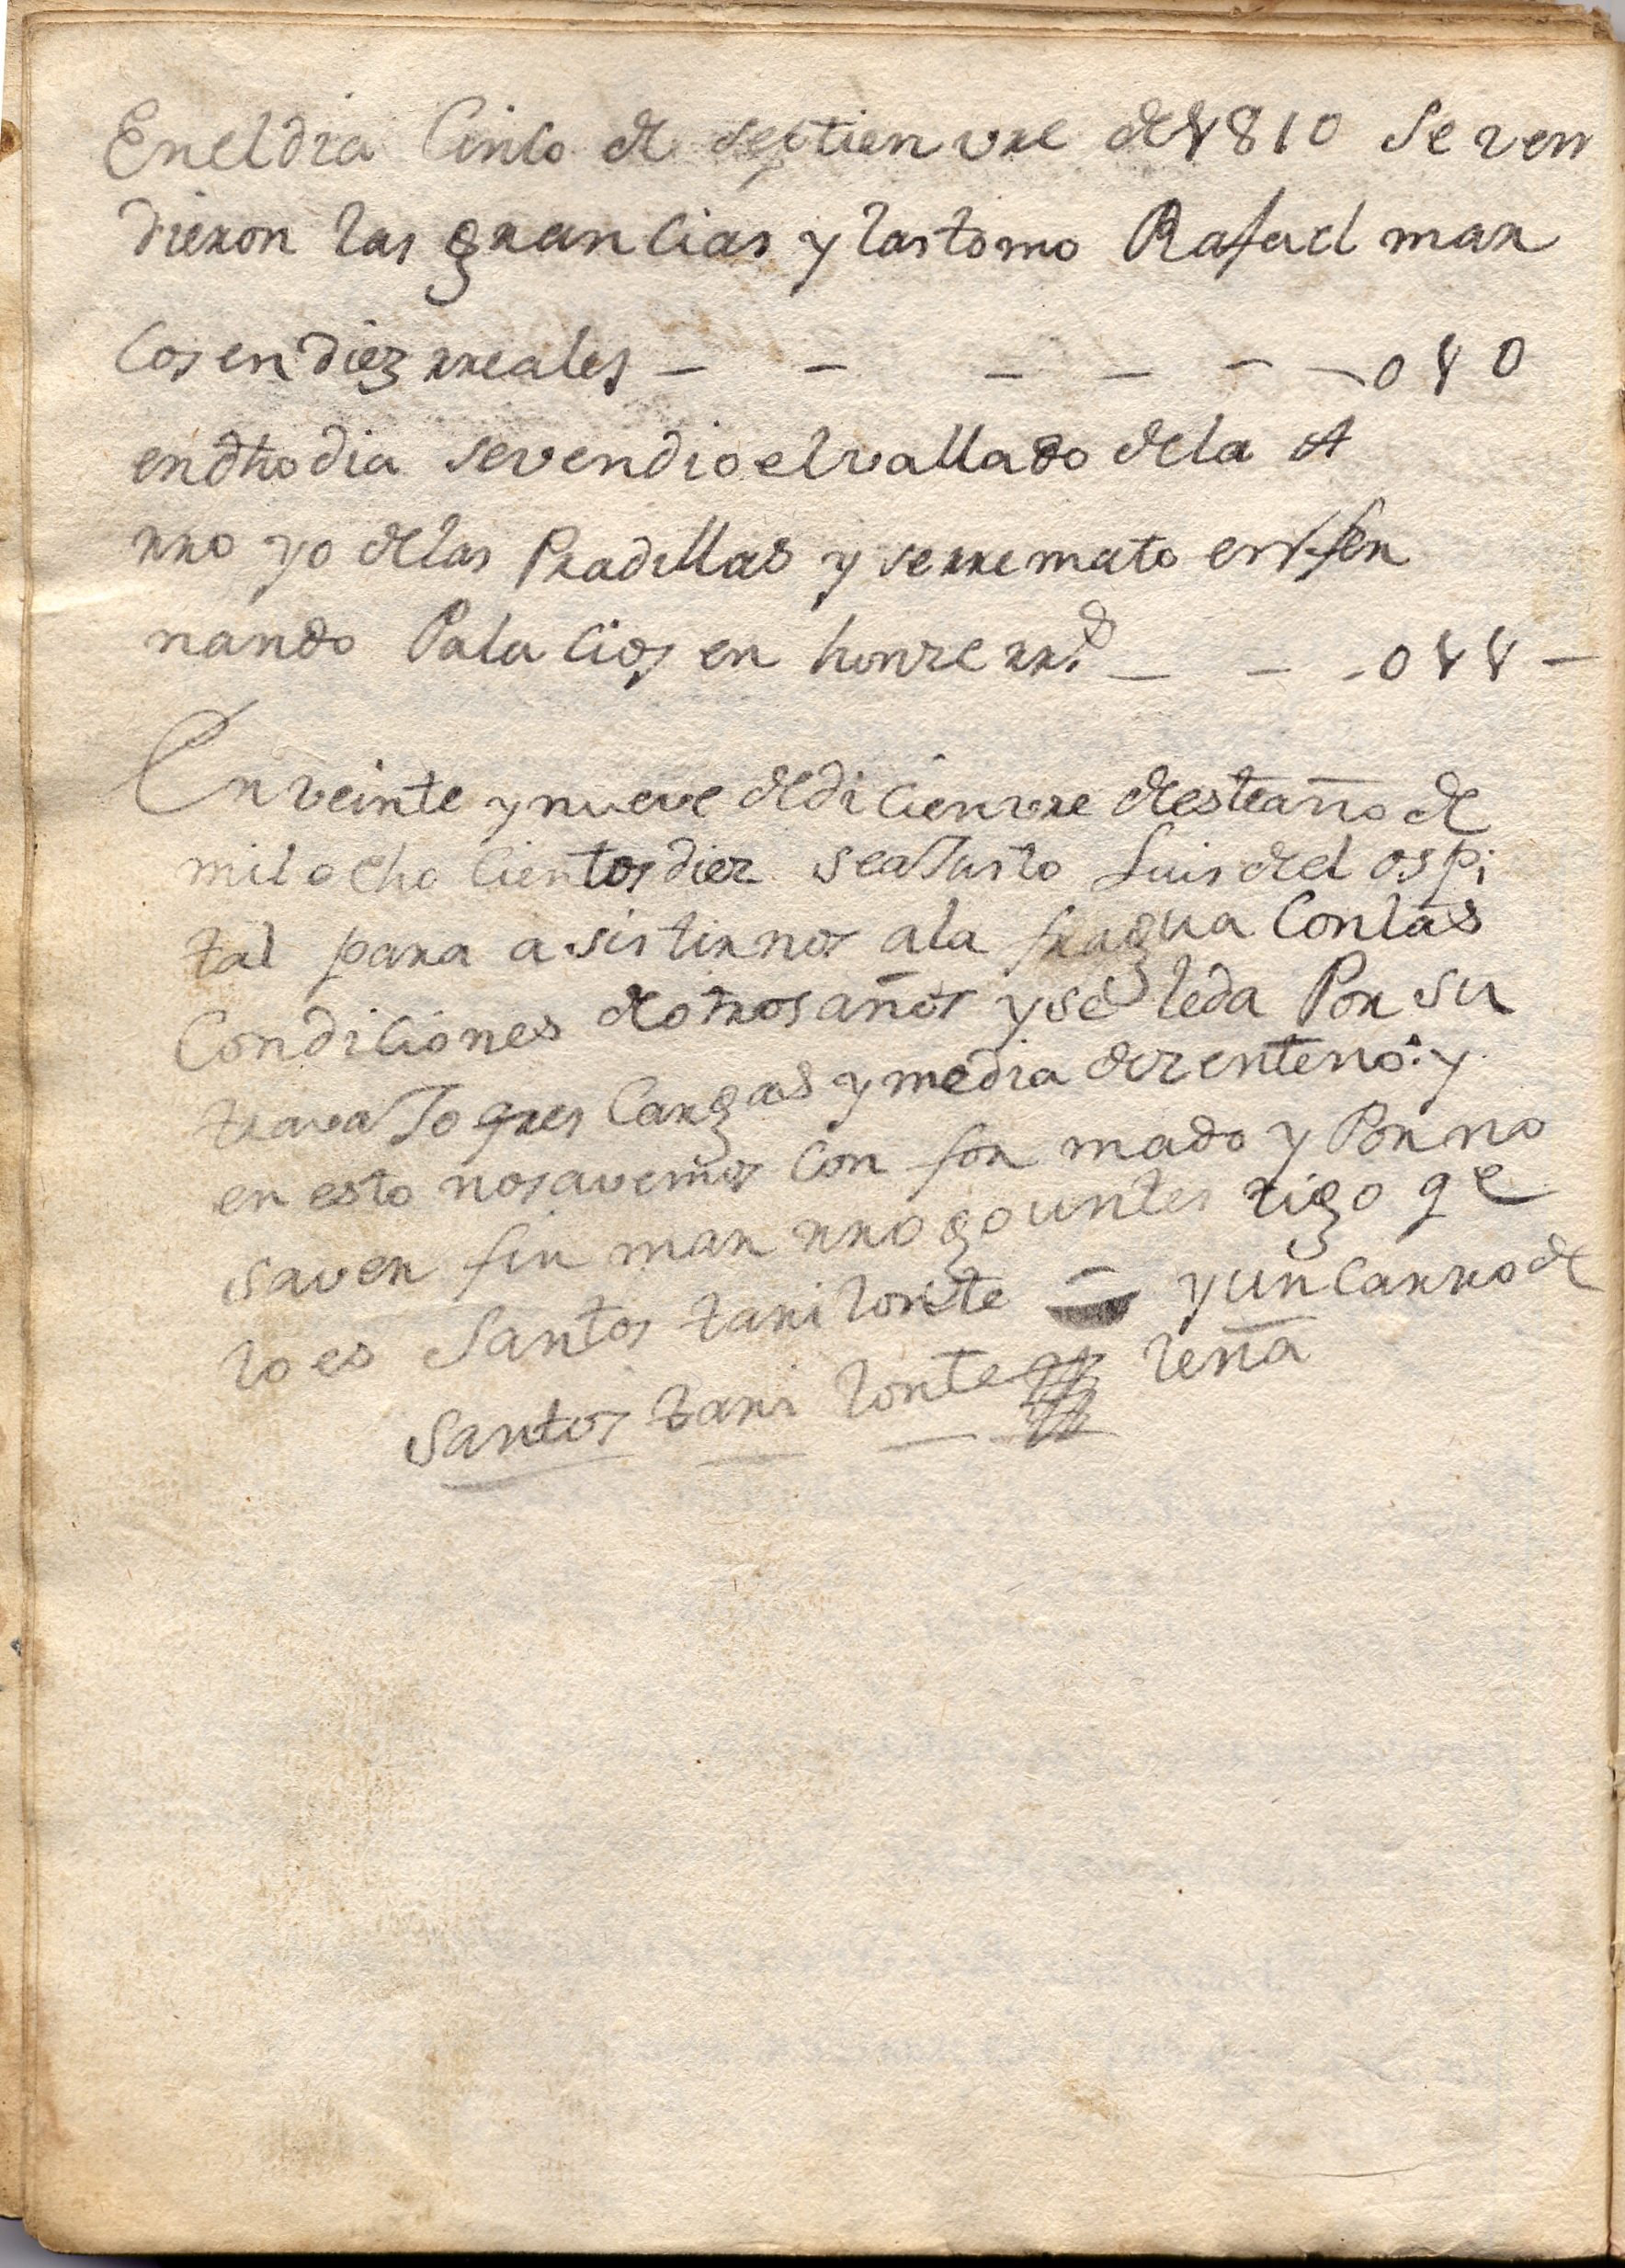 En el dia Cinco de septienvre de 1810 se ven
dieron las grancias y las tomo Rafael mar
cos en diez rreales — — — — — — 010
en dho dia se vendio el vallado de la A
rro yo de las Pradillas y se rremato en fer
nando Palacios en honze rrs — — - 011 —
En veinte y nueve de dicienvre de este año de
mil ocho cientos diez se aJusto Luis del ospi
tal para asistirnos a la fragua Con las
Condiciones de otros años y se le da Por su
travaJo tres Cargas y media de zenteno: y
en esto nos avemos Con for mado y Por no
saver fir mar rrogo un tes tigo qe
lo es Santos tari lonte — y un Carro de
leña
Santos tari lonte